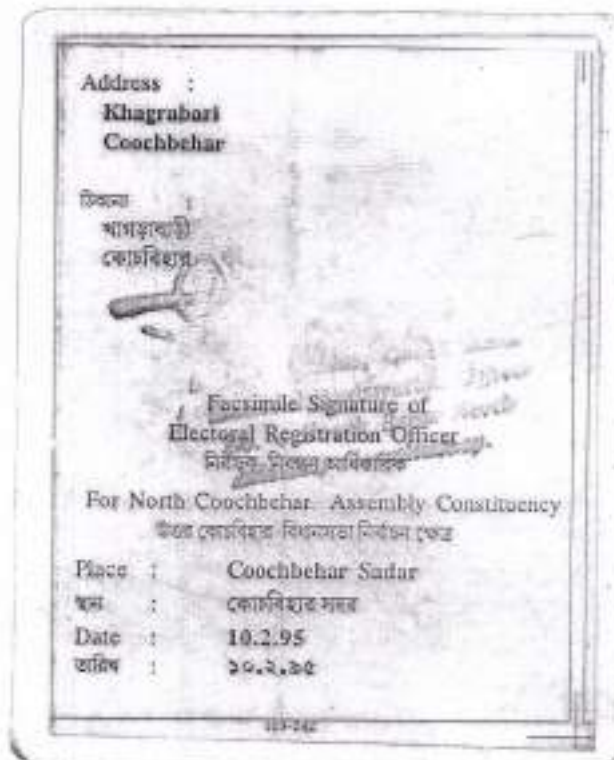 Address :
Khagrabari
Coochbehar
ঠিকানা :
খাগড়াবাড়ী
কোচবিহার
Facsimile Signature of
Electoral Registration Officer
নির্বাচক নিবন্ধন আধিকারিক
For North Coochbehar Assembly Constituency
উত্তর কোচবিহার বিধানসভা নির্বাচন ক্ষেত্র
Place : Coochbehar Sadar
স্থান : কোচবিহার সদর
Date : 10.2.95
তারিখ : ১০.২.৯৫